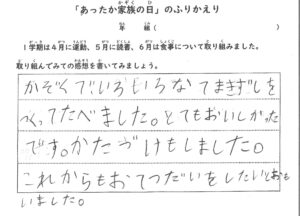 「あったか家族の日」のふりかえり
年　組（　　　　）
1学期は4月に運動、5月に読書、6月は食事について取り組みました。
取り組んでみての感想を書いてみましょう。
かぞくでいろいろなてまきずしを
つくってたべました。とてもおいしかった
です。かたづけもしました。
これからもおてつだいをしたいとおも
いました。